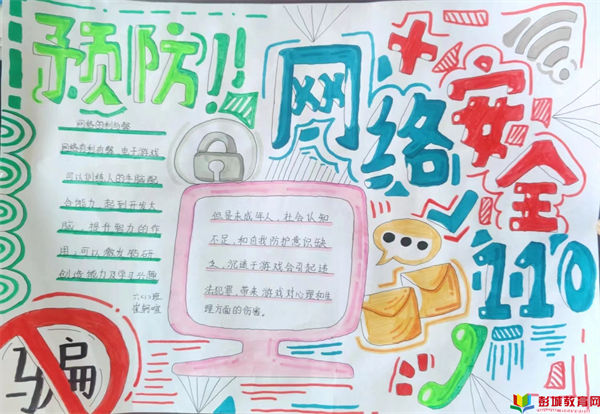 预防!!
网络安全
110
网络的利与弊
网络有利有弊，电子游戏
可以训练人的手脑配
合能力，起到开发大
脑，提升智力的作
用，可以激发钻研
创造能力及学习兴趣
班
但是未成年人，社会认知
不足，和自我防护意识缺
乏，沉迷于游戏会引起违
法犯罪，带来游戏对心理和生
理方面的伤害。
骗
彭城教育网